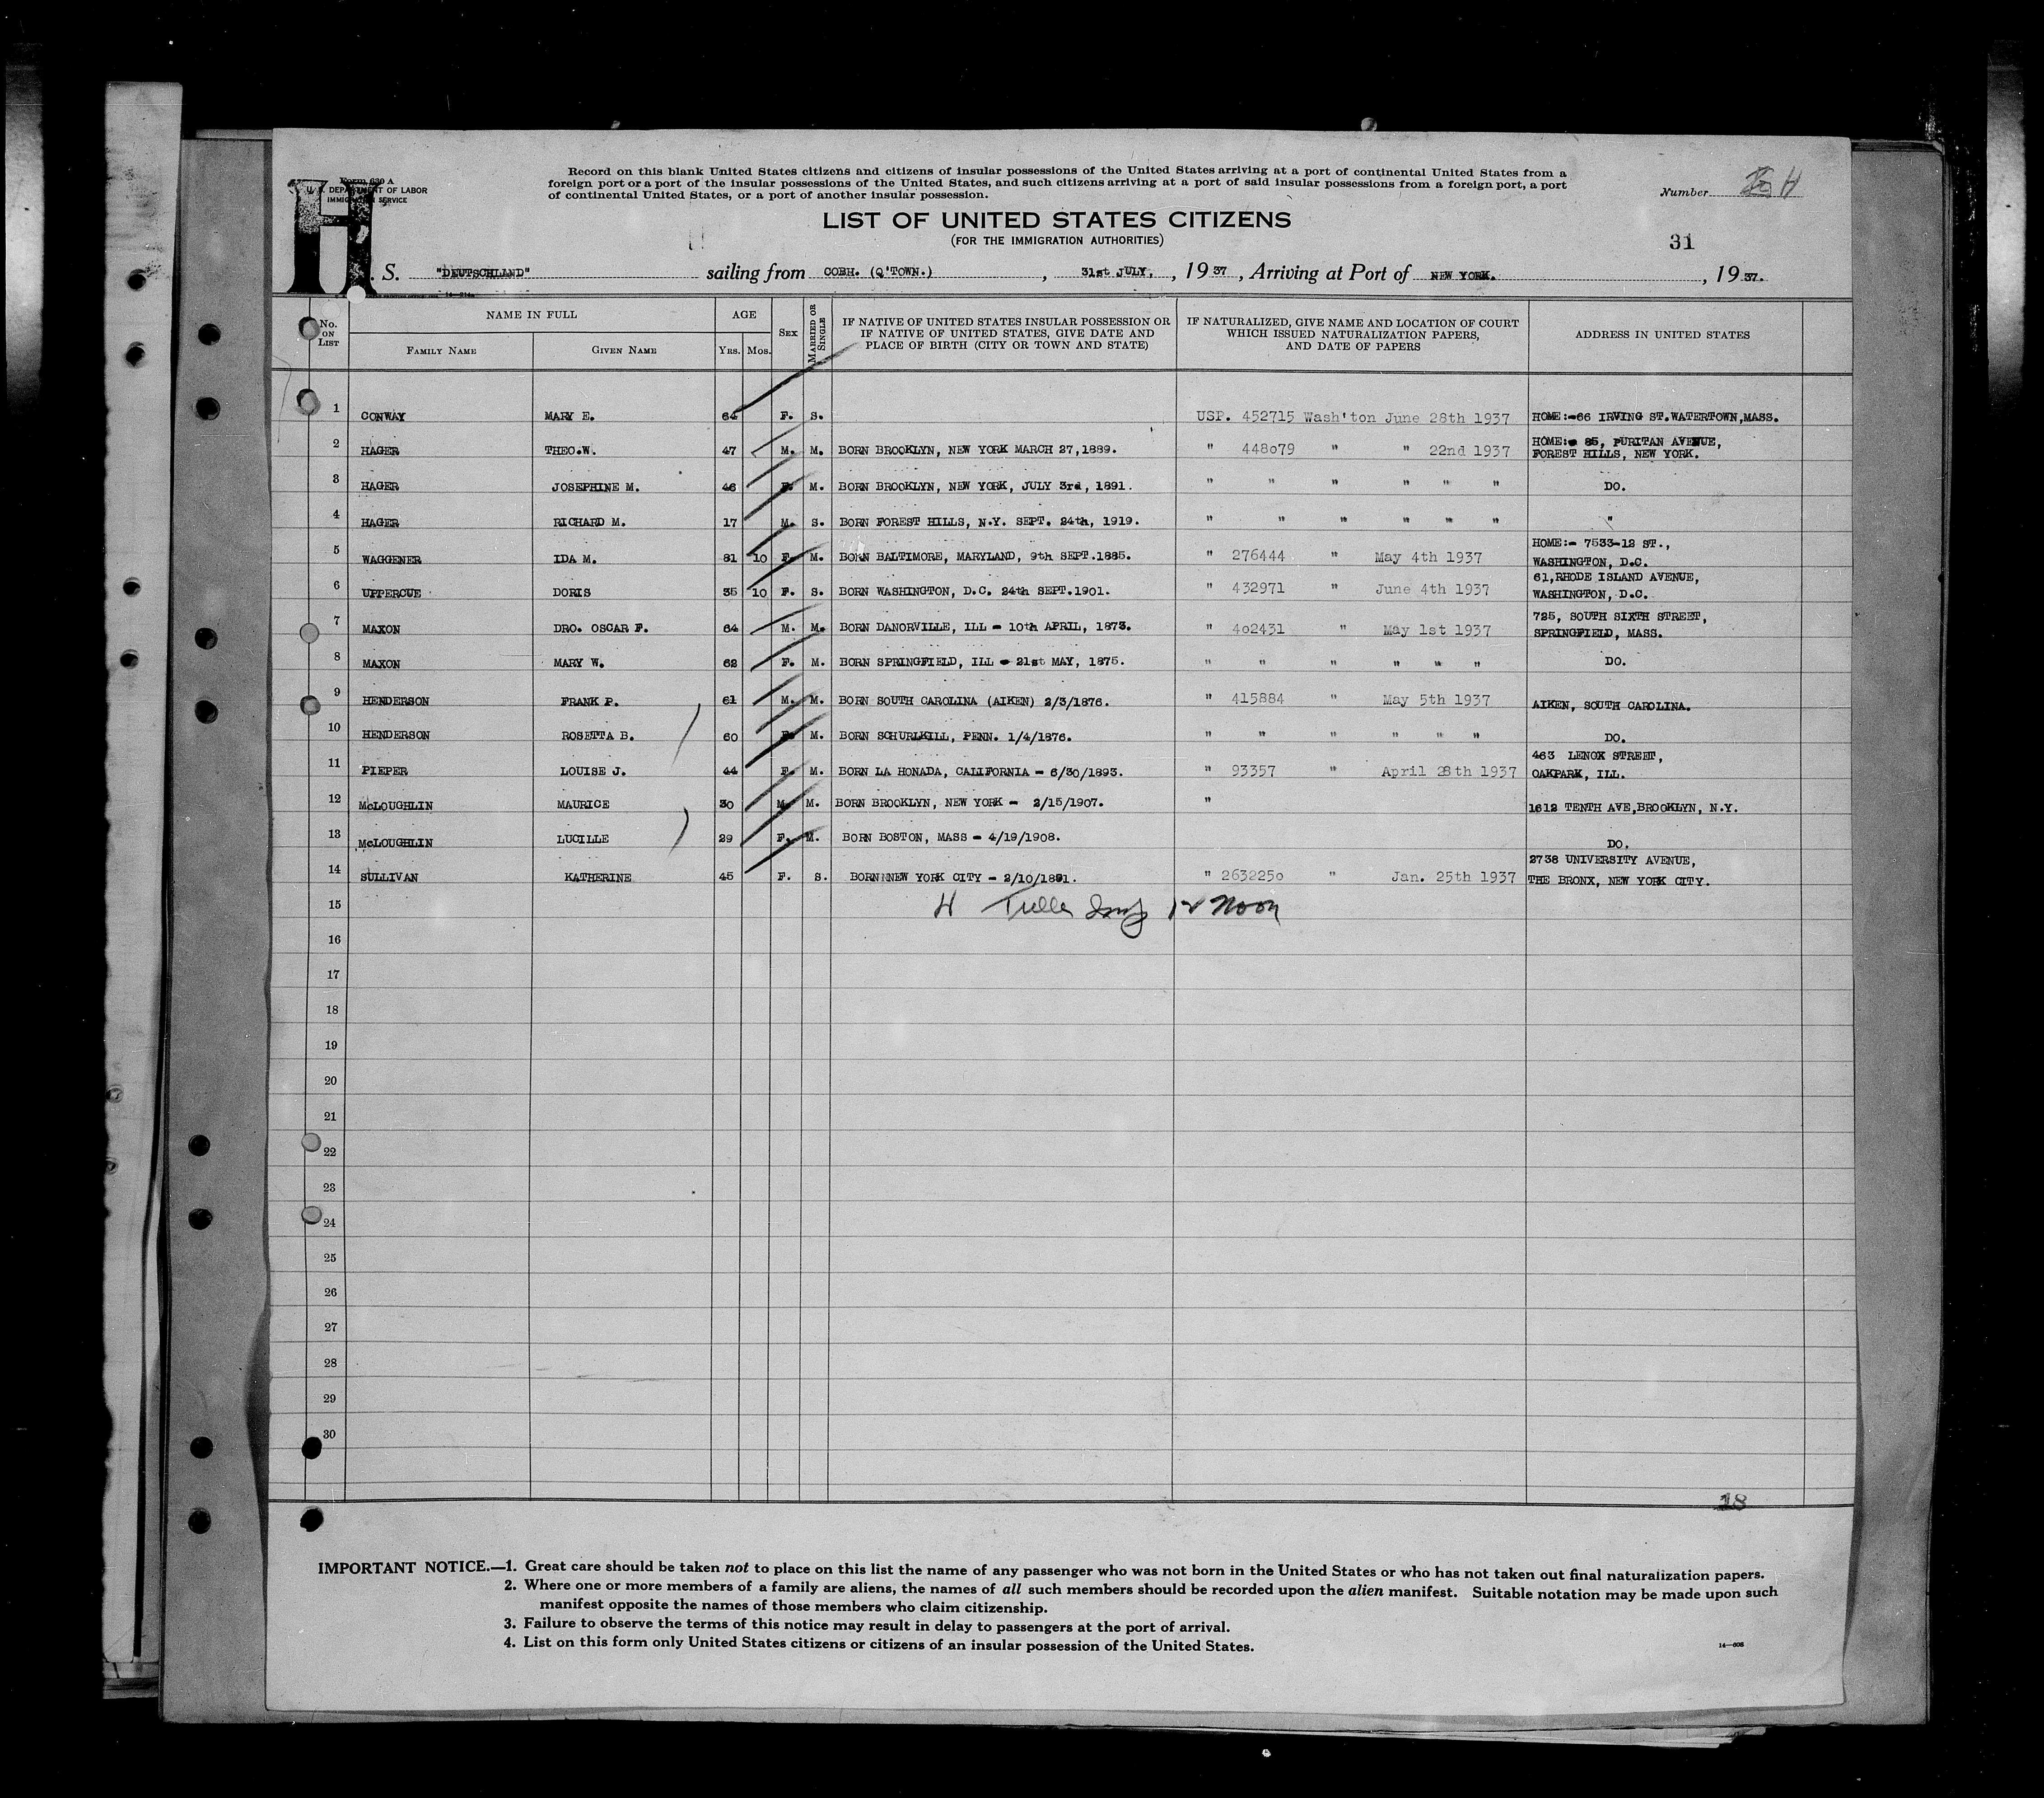 Form 630 A
U. S. DEPARTMENT OF LABOR
IMMIGRATION SERVICE
H
Record on this blank United States citizens and citizens of insular possessions of the United States arriving at a port of continental United States from a
foreign port or a port of the insular possessions of the United States, and such citizens arriving at a port of said insular possessions from a foreign port, a port
of continental United States, or a port of another insular possession.
Number H
LIST OF UNITED STATES CITIZENS
(FOR THE IMMIGRATION AUTHORITIES)
31
S. "DEUTSCHLAND" sailing from COBH. (Q'TOWN.), 31st JULY, 1937, Arriving at Port of NEW YORK., 1937.
No. on List NAME IN FULL Family Name Given Name AGE Yrs. Mos. Sex Married or Single IF NATIVE OF UNITED STATES INSULAR POSSESSION OR IF NATIVE OF UNITED STATES, GIVE DATE AND PLACE OF BIRTH (CITY OR TOWN AND STATE) IF NATURALIZED, GIVE NAME AND LOCATION OF COURT WHICH ISSUED NATURALIZATION PAPERS, AND DATE OF PAPERS ADDRESS IN UNITED STATES
1 CONWAY MARY E. 64 F. S. USP. 452715 Wash'ton June 28th 1937 HOME:-66 IRVING ST.WATERTOWN,MASS.
2 HAGER THEO.W. 47 M. M. BORN BROOKLYN, NEW YORK MARCH 27,1889. " 448079 " " 22nd 1937 HOME:- 85, PURITAN AVENUE, FOREST HILLS, NEW YORK.
3 HAGER JOSEPHINE M. 46 F. M. BORN BROOKLYN, NEW YORK, JULY 3rd, 1891. " " " " " " DO.
4 HAGER RICHARD M. 17 M. S. BORN FOREST HILLS, N.Y. SEPT. 24th, 1919. " " " " " " "
5 WAGGENER IDA M. 81 10 F. M. BORN BALTIMORE, MARYLAND, 9th SEPT.1885. " 276444 " May 4th 1937 HOME:- 7533-12 ST., WASHINGTON, D.C.
6 UPPERCUE DORIS 35 10 F. S. BORN WASHINGTON, D.C. 24th SEPT.1901. " 432971 " June 4th 1937 61,RHODE ISLAND AVENUE, WASHINGTON, D.C.
7 MAXON DRO. OSCAR F. 64 M. M. BORN DANORVILLE, ILL - 10th APRIL, 1873. " 402431 " May 1st 1937 725, SOUTH SIXTH STREET, SPRINGFIELD, MASS.
8 MAXON MARY W. 62 F. M. BORN SPRINGFIELD, ILL - 21st MAY, 1875. " " " " " " DO.
9 HENDERSON FRANK P. 61 M. M. BORN SOUTH CAROLINA (AIKEN) 2/3/1876. " 415884 " May 5th 1937 AIKEN, SOUTH CAROLINA.
10 HENDERSON ROSETTA B. 60 F. M. BORN SCHURLKILL, PENN. 1/4/1876. " " " " " " DO.
11 PIEPER LOUISE J. 44 F. M. BORN LA HONADA, CALIFORNIA - 6/30/1893. " 93357 " April 28th 1937 463 LENOX STREET, OAKPARK, ILL.
12 McLOUGHLIN MAURICE 30 M. M. BORN BROOKLYN, NEW YORK - 2/15/1907. " 1612 TENTH AVE,BROOKLYN, N.Y.
13 McLOUGHLIN LUCILLE 29 F. M. BORN BOSTON, MASS - 4/19/1908. DO.
14 SULLIVAN KATHERINE 45 F. S. BORN NEW YORK CITY - 2/10/1891. " 2632250 " Jan. 25th 1937 2738 UNIVERSITY AVENUE, THE BRONX, NEW YORK CITY.
15 H 12 Noon
16
17
18
19
20
21
22
23
24
25
26
27
28
29
30
18
IMPORTANT NOTICE.—1. Great care should be taken not to place on this list the name of any passenger who was not born in the United States or who has not taken out final naturalization papers.
2. Where one or more members of a family are aliens, the names of all such members should be recorded upon the alien manifest. Suitable notation may be made upon such
manifest opposite the names of those members who claim citizenship.
3. Failure to observe the terms of this notice may result in delay to passengers at the port of arrival.
4. List on this form only United States citizens or citizens of an insular possession of the United States.